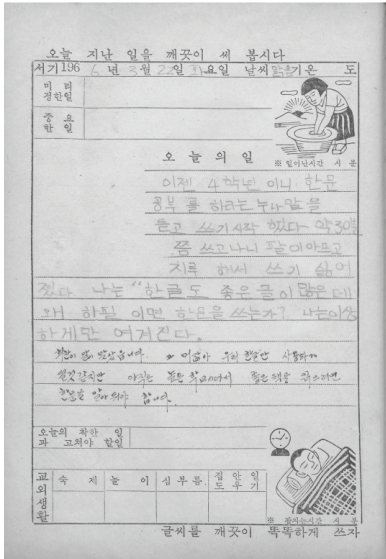 오늘 지난 일을 깨끗이 써 봅시다
서기196 6 년 3 월 22 일 화 요일 날씨 맑음 기온 도
미 리
정한일
중 요
한 일
※ 일어난시간 시 분
오 늘 의 일
이젠 4학년 이니 한문
공부 를 하라는 누나 말을
듣고 쓰기 시작 했다~ 약 30분
쯤 쓰고나니 팔이 아프고
지루 해서 쓰기 싫어
졌다. 나는 "한글도 좋은 글이 많은데
왜 하필 이면 한문을 쓰는가? 나는 이상
하게만 여겨진다.
우리 한글만 사용하게
될것 같지만 아직은 좋은 책을
한문을 알아 둬야 합니다.
오늘의 착한 일
과 고쳐야 할일
교 외 생 활
숙 제
놀 이
심부름
집 안 일
도 우 기
※ 잠자는시간 시 분
글씨를 깨끗이 똑똑하게 쓰자